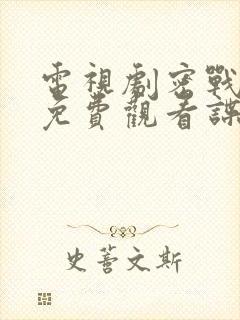 電視劇密戰
免費觀看諜
史蒼文斯